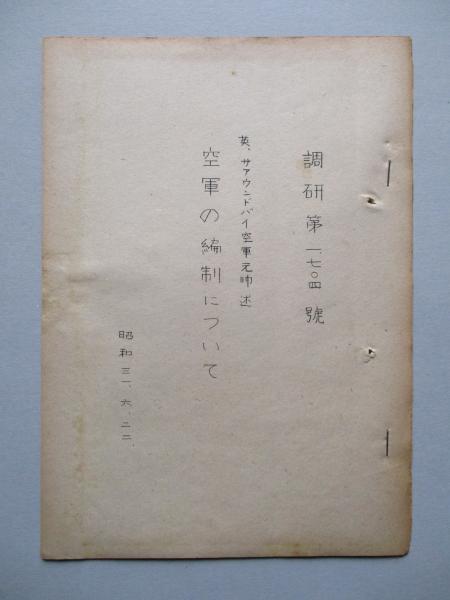 調研第一七〇四號
英、サァウンドバイ空軍元帥述
空軍の編制について
昭和三一、六、二二、